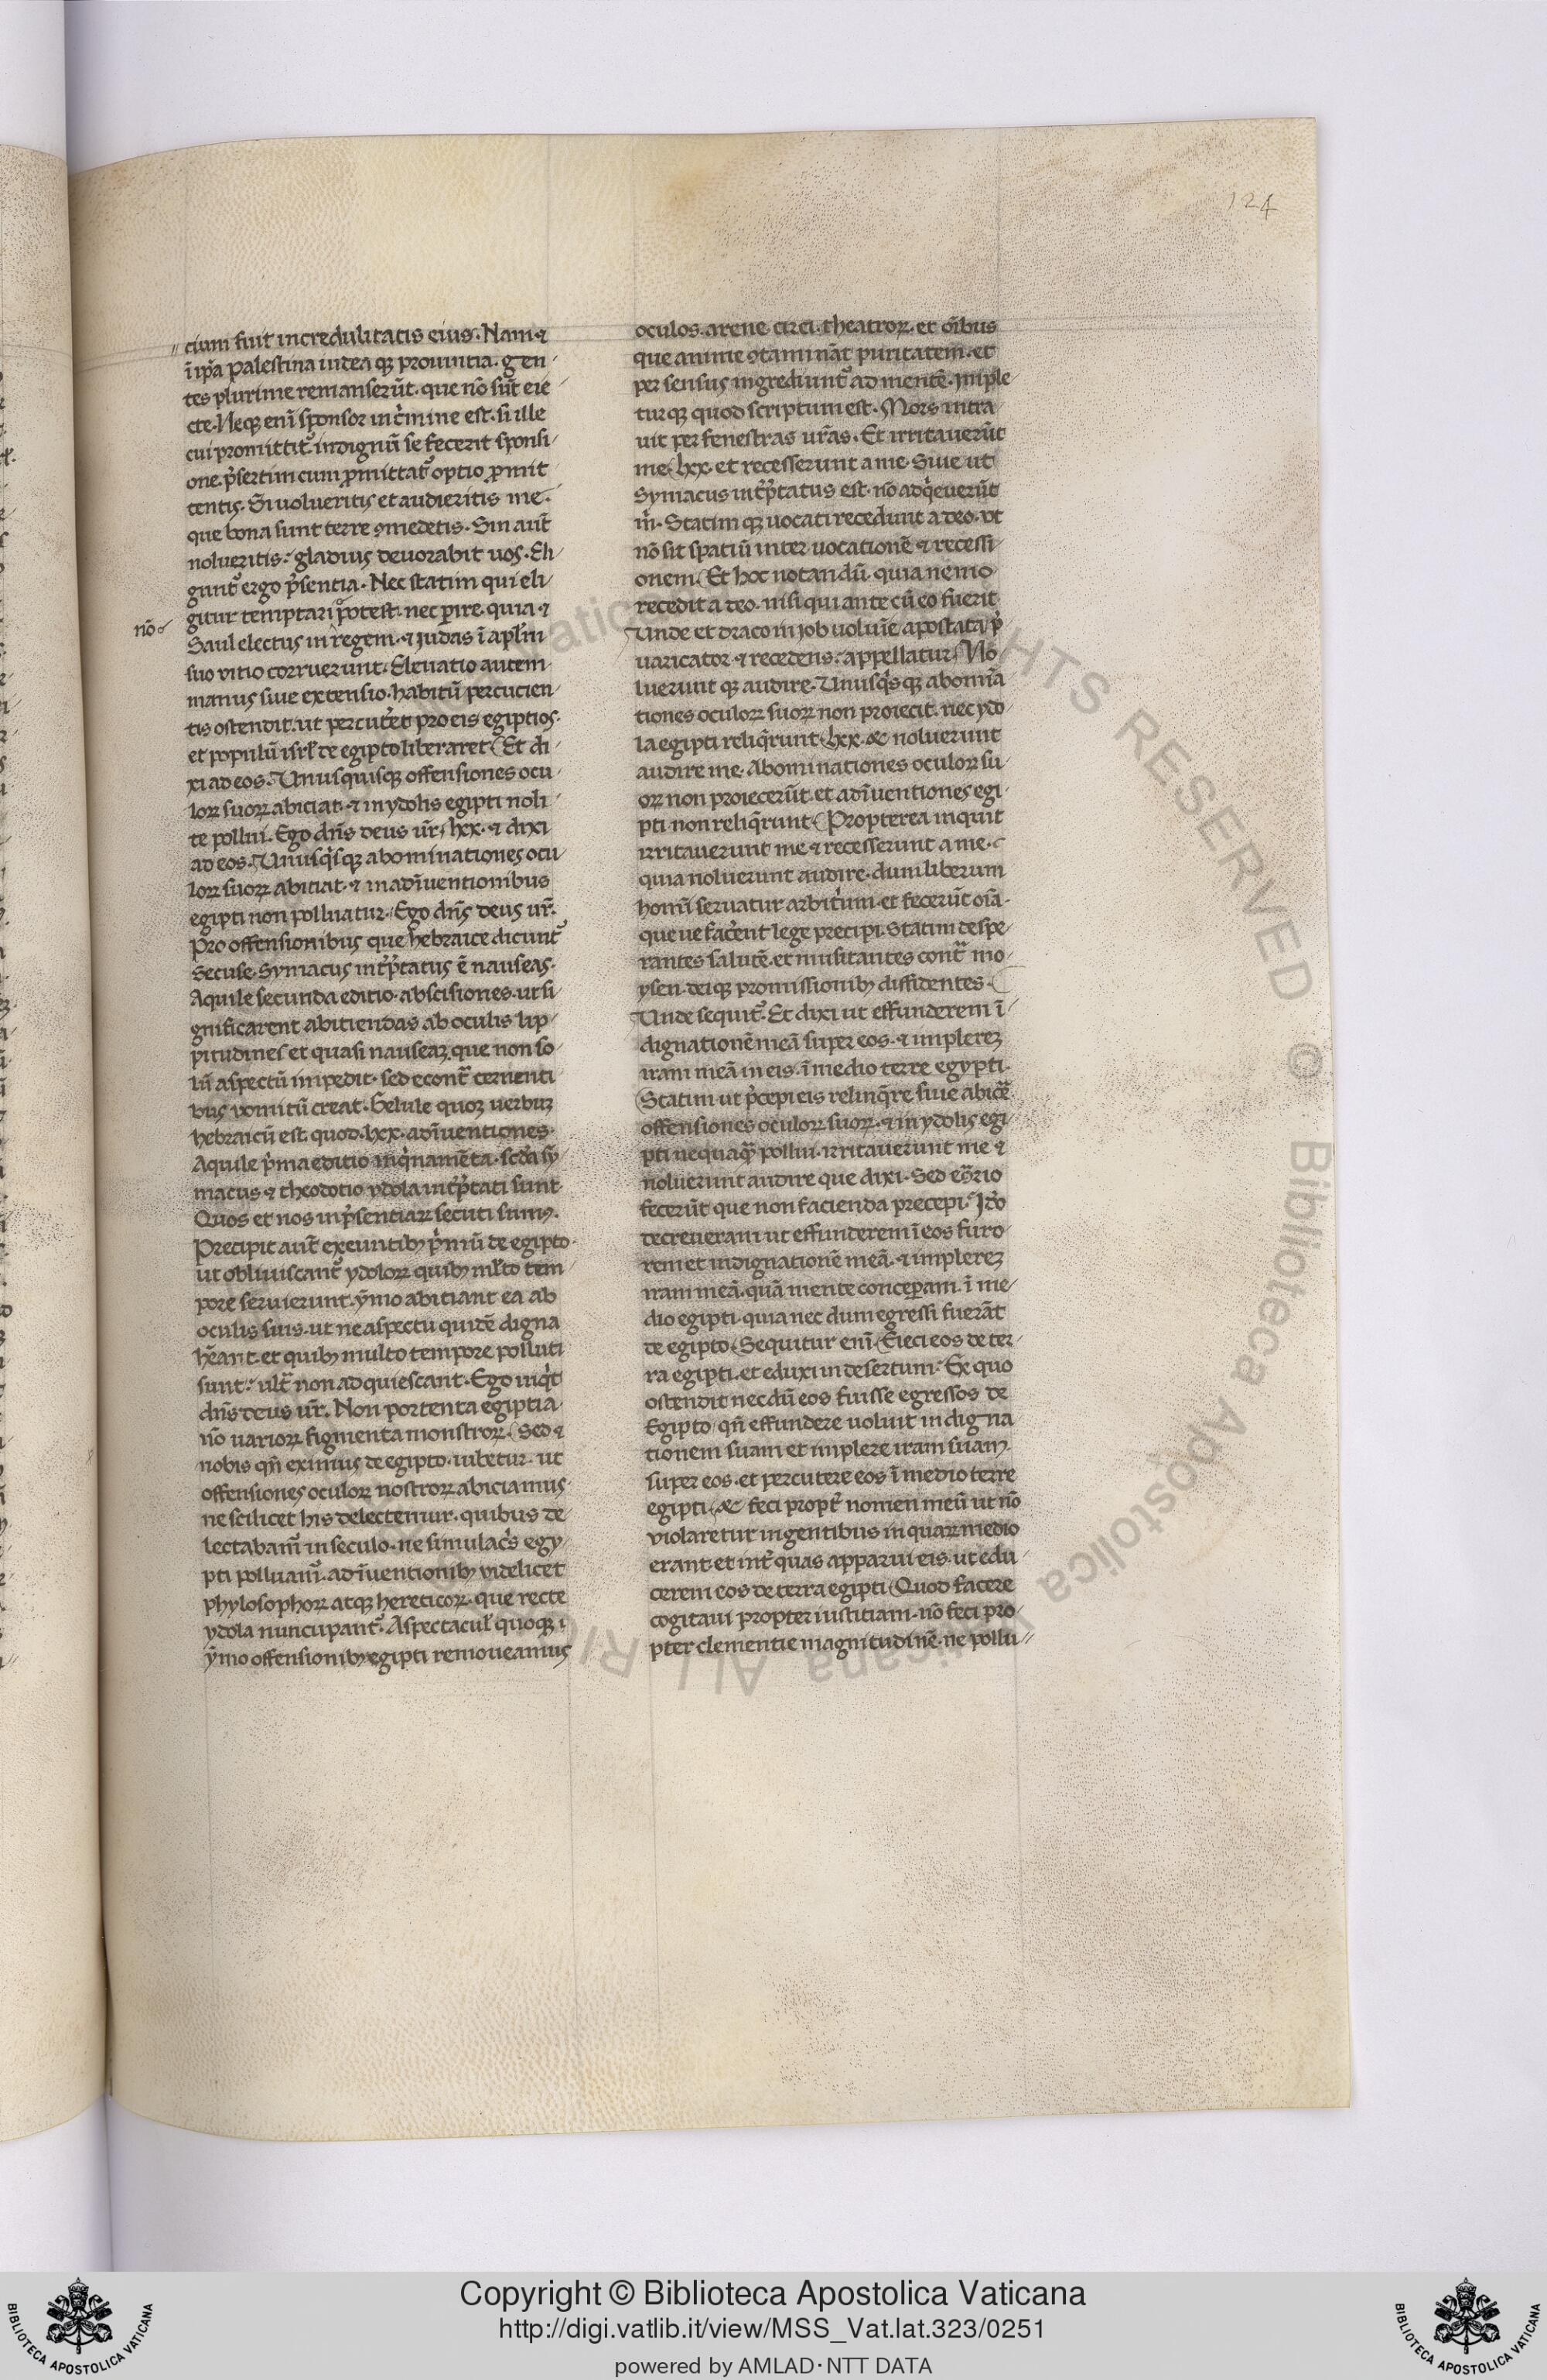 124
cium fuit incredulitatis eius. Nam ⁊
ı̄ ip̄a Palestina iudea qꝫ prouintia. gen
tes plurime remanserūt. que nō sūt eie
cte. Neqꝫ enī sponsor in cͥmine est. si ille
cui promittit᷑ indignū se fecerit sponsi
one. p̄sertim cum ꝓmittat᷑ optio ꝓmit
tentis. Si volueritis et audieritis me.
que bona sunt terre ꝯmedetis. Sin aūt
nolueritis: gladius deuorabit uos. Eli
gunt᷑ ergo p̄sentia. Nec statim qui eli
gitur temptari potest. nec ꝑire. quia ⁊
nō
Saul electus in regem. ⁊ Judas ı̄ apl̄m
suo vitio corruerunt. Eleuatio autem
manus siue extensio. habitū percucien
tis ostendit. ut percut̄et pro eis egiptios.
et populū isrl̄ de egipto liberaret. Et di
xi ad eos. Unusquisqꝫ offensiones ocu
loꝝ suoꝝ abiciat. ⁊ in ydolis egipti noli
te pollui. Ego dn̄s deus ur̄. lxx. ⁊ dixi
ad eos. Unusqͥsqꝫ abominationes ocu
loꝝ suoꝝ abiciat. ⁊ in adı̄uentionibus
egipti non polluatur. Ego dn̄s deus ur̄.
Pro offensionibus que hebraice dicunt᷑
secuse. Symacus int̄p̄tatus ē nauseas.
Aquile secunda editio. abscisiones. ut si
gnificarent abitiendas ab oculis lip
pitudines et quasi nauseaꝫ que non so
lū aspectū impedit. sed econt̄ cernenti
bus vomitū creat. Gelule quoꝫ uerbuꝫ
hebraicū est. quod. lxx. adı̄uentiones.
Aquile pͥma editio inqͥnamēta. scd̄a sy
macus ⁊ theodotio ydola int̄p̄tati sunt
Quos et nos in p̄sentiaꝝ secuti sumꝰ.
Precipit aūt exeuntibꝫ pͥmū de egipto
ut obliuiscant᷑ ydoloꝝ quibꝫ ml̄to tem
pore seruierunt. ȳmo abitiant ea ab
oculis suis. ut ne aspectu quidē digna
hēant. et quibꝫ multo tempore polluti
sunt: ult̄ non adquiescant. Ego inqͥt
dn̄s deus ur̄. Non portenta egiptia
nō uarioꝝ figmenta monstroꝝ. Sed ⁊
nobis qn̄ eximus de egipto. iubetur. ut
offensiones oculoꝝ nostroꝝ abiciamus
ne scilicet his delectemur. quibus de
lectabam᷑ in seculo. ne simulacͥs egy
pti polluam᷑. adı̄uentionibꝫ videlicet
phylosophoꝝ atqꝫ hereticoꝝ. que recte
ydola nuncupant᷑. A spectacul̄ quoqꝫ i
ȳmo offensionibꝫ egipti remoueamus
oculos. arene circi. theatroꝝ. et oı̄bus
que anime ꝯtamināt puritatem. et
per sensus ingrediunt᷑ ad mentē. Imple
turqꝫ quod scriptum est. Mors intra
uit per fenestras ur̄as. Et irritauerūt
me. lxx. et recesserunt a me. Siue ut
Symacus int̄p̄tatus est. nō adqͥeuerūt
m̄. Statimqꝫ uocati recedunt a deo. vt
nō sit spatiū inter uocationē ⁊ recessi
onem. Et hoc notandū. quia nemo
recedit a deo. nisi qui ante cū eo fuerit
Unde et draco in Job uolumı̄e apostata p̄
uaricator ⁊ recedens: appellatur. No
lueruntqꝫ audire. Unusqͥsqꝫ abomı̄a
tiones oculoꝝ suoꝝ non proiecit. nec ydo
la egipti reliqͥrunt. lxx. ⁊c noluerunt
audire me. Abominationes oculoꝝ su
oꝝ non proiecerūt. et adı̄uentiones egi
pti. non reliqͥrunt. Propterea inquit
irritauerunt me ⁊ recesserunt a me.
quia noluerunt audire. dum liberum
homī seruatur arbitͥum. et fecerūt oı̄a.
que ne facēent lege precipi. Statim despe
rantes salutē. et musitantes cont̄ mo
ysen. deiqꝫ promissionibꝫ diffidentes.
Unde sequit᷑. Et dixi ut effunderem ı̄
dignationē meā super eos. ⁊ implereꝫ
iram meā in eis. ı̄ medio terre egypti.
Statim ut p̄cepi eis relinqͥre siue abicē
offensiones oculoꝝ suoꝝ. ⁊ in ydolis egi
pti nequaqͣ̄ pollui. irritauerunt me ⁊
noluerunt audire que dixi. Sed eꝯ̄rio
fecerūt que non facienda precepi. Idͦo
decreueram ut effunderem ı̄ eos furo
rem et indignationē meā. ⁊ implereꝫ
iram meā. quā mente conceperam. ı̄ me
dio egipti. quia nec dum egressi fuerāt
de egipto. Sequitur enī. Eieci eos de ter
ra egipti. et eduxi in desertum: Ex quo
ostendit nec dū eos fuisse egressos de
Egipto. qn̄ effundere uoluit indigna
tionem suam et implere iram suam
super eos. et percutere eos ı̄ medio terre
egipti. ⁊c feci propt̄ nomen meū ut nō
violaretur in gentibus in quaꝝ medio
erant. et int̄ quas apparui eis. ut edu
cerem eos de terra egipti. Quod facere
cogitaui propter iustitiam. nō feci pro
pter clementie magnitudinē. ne pollu
Copyright © Biblioteca Apostolica Vaticana
http://digi.vatlib.it/view/MSS_Vat.lat.323/0251
powered by AMLAD·NTT DATA